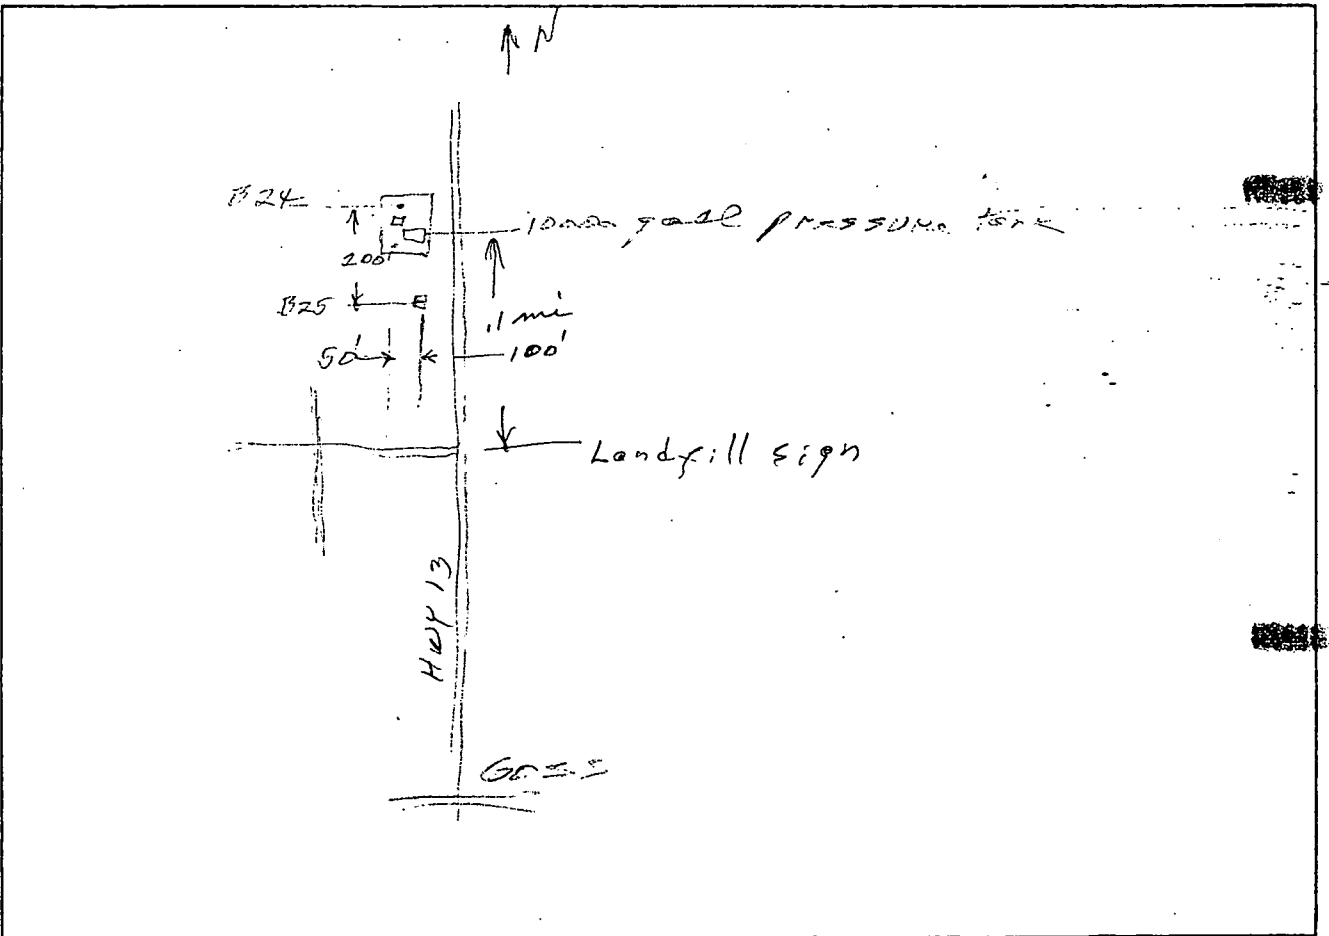 N
B24
10000 gall pressure tank
200'
B25
.1 mi
50'
100'
Landfill sign
Hwy 13